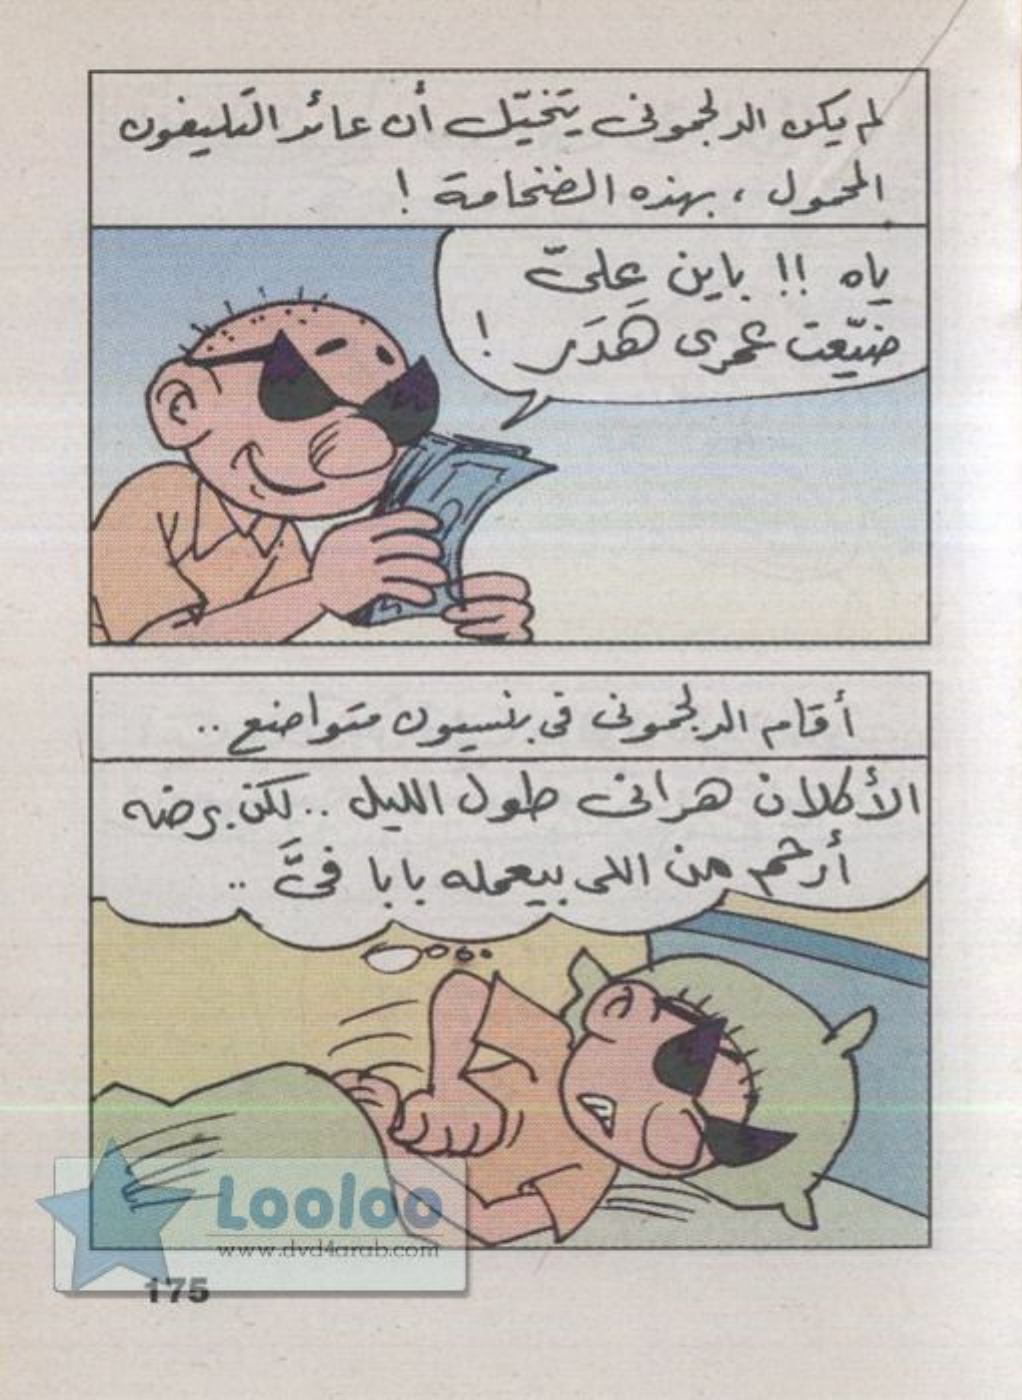 لم يكن الدلجمونى يتخيّل أن عائد التليفون
المحمول ، بهذه الضخامة !
ياه !! باين عليّ
ضيّعت عمرى هدَر !
أقام الدلجمونى فى بنسيون متواضع ..
الأكلان هرانى طول الليل .. لكن برضه
أرحم من اللى بيعمله بابا فىَّ ..
Looloo
www.dvd4arab.com
175